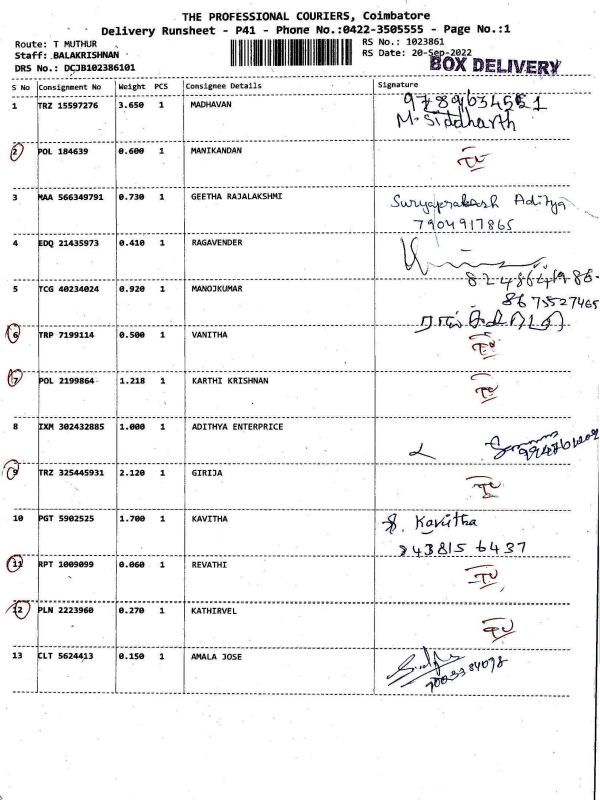 THE PROFESSIONAL COURIERS, Coimbatore
Delivery Runsheet - P41 - Phone No.:0422-3505555 - Page No.:1
Route: T MUTHUR
RS No.: 1023861
Staff: BALAKRISHNAN
RS Date: 20-Sep-2022
DRS No.: DCJB102386101
BOX DELIVERY
S No Consignment No Weight PCS Consignee Details Signature
1 TRZ 15597276 3.650 1 MADHAVAN
M. Siddharth
2 POL 184639 0.600 1 MANIKANDAN
3 MAA 566349791 0.730 1 GEETHA RAJALAKSHMI Suryaprakash Aditya
7904917865
4 EDQ 21435973 0.410 1 RAGAVENDER
5 TCG 40234024 0.920 1 MANOJKUMAR
8675527465
6 TRP 7199114 0.500 1 VANITHA
7 POL 2199864 1.218 1 KARTHI KRISHNAN
8 IXM 302432885 1.000 1 ADITHYA ENTERPRICE
9 TRZ 325445931 2.120 1 GIRIJA
10 PGT 5902525 1.700 1 KAVITHA Kavitha
843815 6437
11 RPT 1009099 0.060 1 REVATHI
12 PLN 2223960 0.270 1 KATHIRVEL
13 CLT 5624413 0.150 1 AMALA JOSE